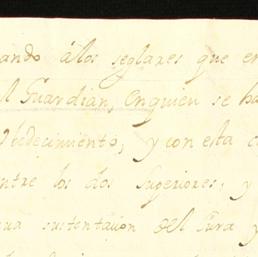 ando á los seglares que en
l Guardian, en quien se ha
Obedecimiento, y con esta c
ntre los dos Superiores, y
sua sustentacion del Cura y